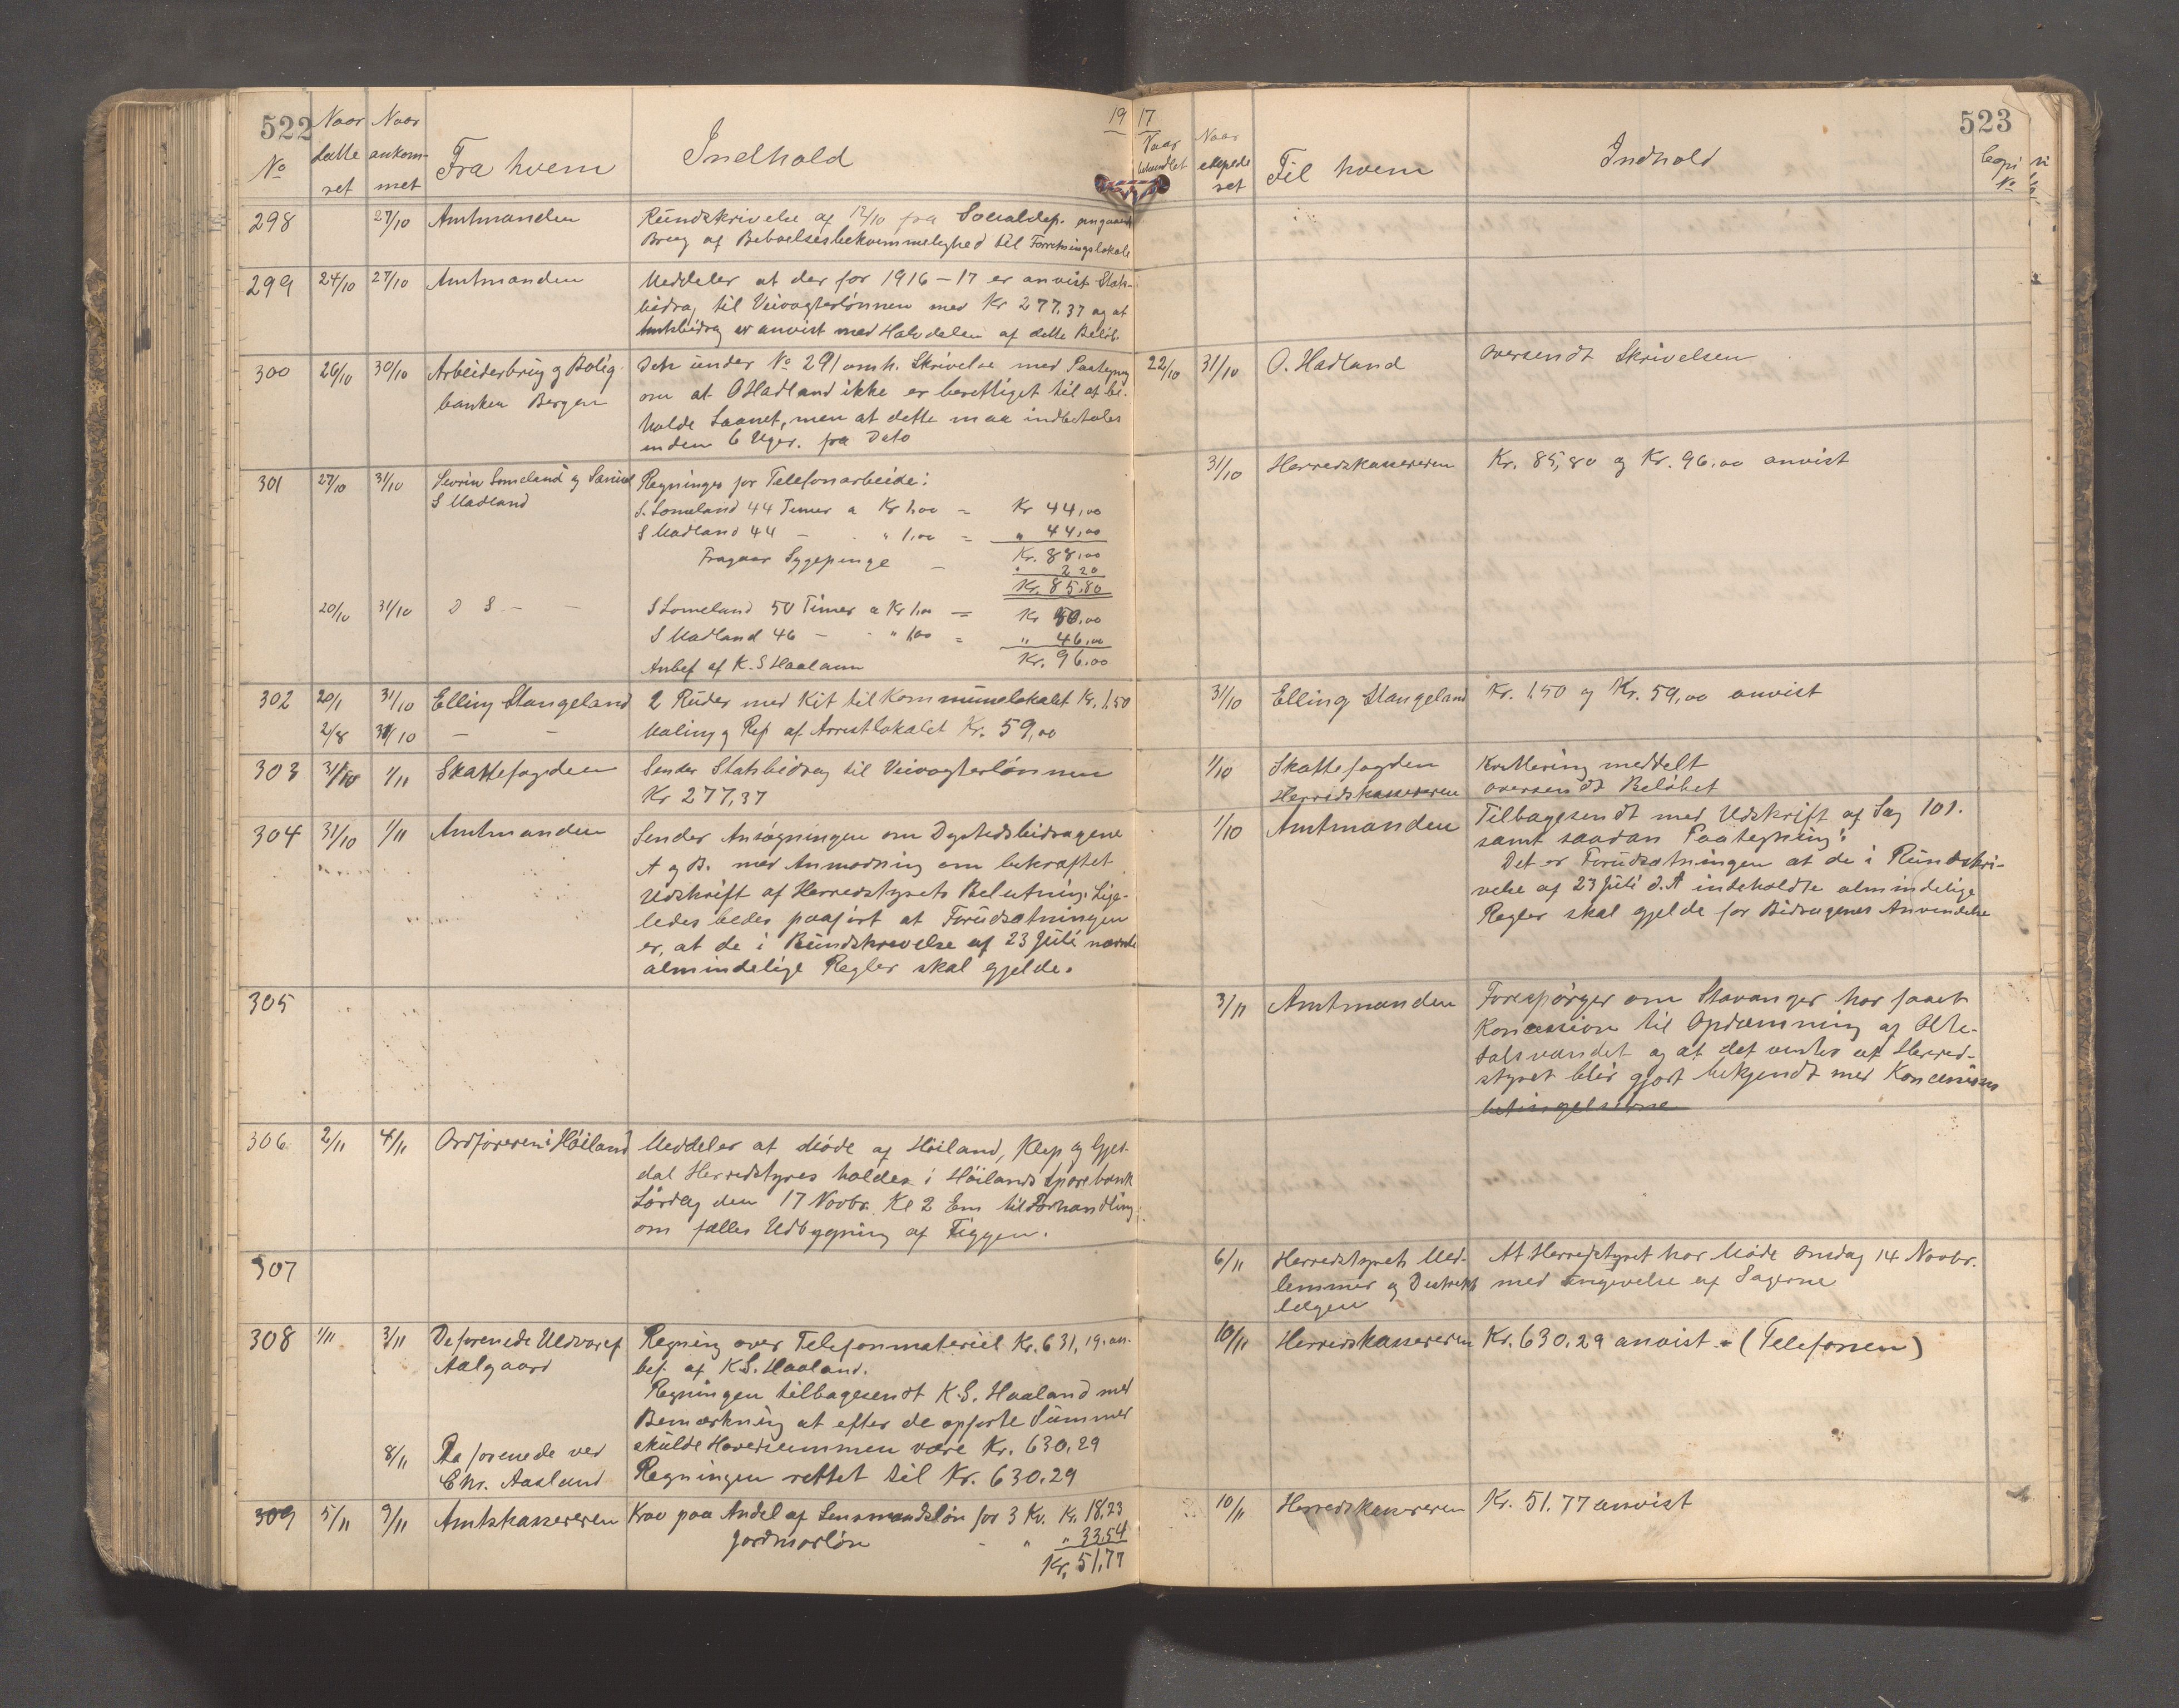 522
19
No
Naar datte ret
Naar ankom- met
Fra hvem
Indhold
298
27/10
Amtmanden
Rundskrivelse af 12/10 fra Socialdep. angaaende
Brug af Beboelsesbekvemmelighed til Forretningslokale
299
24/10
27/10
Amtmanden
Meddeler at der for 1916-17 er anvist Stats-
bidrag til Veivogterlönnen med Kr 277,37 og at
Amtsbidrag er anvist med Halvdelen af dette Belöb.
300
26/10
30/10
Arbeiderbrug og Bolig-
banken Bergen
Den under No 291 omh. Skrivelse med Paategning
om at O Hadland ikke er berettiget til at be-
holde Laanet, men at dette maa indbetales
inden 6 Uger. fra Dato
301
27/10
31/10
Sevrin Lomeland og Samuel
S Madland
Regninger for Telefonarbeide:
S. Lomeland 44 Timer a Kr 1.00 = Kr 44,00
S Madland 44 — - " 1,00 = " 44,00
Fragaar Sygepenge — Kr. 88,00
" 2 20
Kr. 85.80
20/10
31/10
D S — —
S Lomeland 50 Timer a Kr 1.00 = Kr 50,00
S Madland 46 — - " 1,00 = " 46,00
Anbef af K. S Haaland Kr. 96,00
302
20/1
31/10
Elling Stangeland
2 Ruder med Kit til Kommunelokalet Kr. 1,50
2/8
31/10
— —
Maling og Rep af Arrestlokalet Kr. 59,00
303
31/10
1/11
Skattefogden
Sender Statsbidrag til Veivogterlönnen
Kr 277,37
304
31/10
1/11
Amtmanden
Sender Ansögningen om Dyrtidsbidragene
A og B. med Anmodning om bekræftet
Udskrift af Herredstyrets Belutning. Lige-
ledes bedes paafört at Forudsætningen
er, at de i Rundskrivelse af 23 Juli nævnte
almindelige Regler skal gjelde.
305
306
2/11
4/11
Ordföreren i Höiland
Meddeler at Möde af Höiland, Klep og Gjes-
dal Herredstyres holdes i Höilands Sparebank
Lördag den 17 Novbr. Kl 2 Em til Forhandling
om fælles Udbygning af Figgen.
307
308
1/11
3/11
De forenede Uldvaref
Aalgaard
Regning over Telefonmateriel Kr. 631,19. an-
bef af K S. Haaland.
Regningen tilbagesendt K. S. Haaland med
Bemærkning at efter de opförte Summer
skulde Hovedsummen være Kr. 630.29
8/11
De forenede ved
Chr. Aasland
Regningen rettet til Kr. 630.29
309
5/11
9/11
Amtskassereren
Krav paa Andel af Lensmandslön for 3 Kv. Kr. 18,23
Jordmorlön - " " 33,54
Kr. 51,77
523
17
Naar behandlet
Naar expede ret
Til hvem
Indhold
Copi No
22/10
31/10
O. Hadland
oversendt Skrivelsen
31/10
Herredskassereren
Kr. 85,80 og Kr. 96,00 anvist
31/10
Elling Stangeland
Kr. 1.50 og Kr. 59,00 anvist
1/10
Skattefogden
Kvittering meddelt
Herredskassereren
oversendt Belöbet
1/10
Amtmanden
Tilbagesendt med Udskrift af Sag 101.
samt saadan Paategning:
Det er Forudsætningen at de i Rundskri-
velse af 23 Juli d. A indeholdte almindelige
Regler skal gjelde for Bidragenes Anvendelse
3/11
Amtmanden
Forespörger om Stavanger har faaet
Koncession til Opdæmning af Olte-
dalsvandet og at det ventes at Herred-
styret blir gjort bekjendt med Koncessions
betingelserne
6/11
Herredstyrets Med-
lemmer og Distrikts
lægen
At Herredstyret har Möde Onsdag 14 Novbr.
med Angivelse af Sagerne
10/11
Herredskassereren
Kr. 630.29 anvist - (Telefonen)
10/11
Herredskassereren
Kr. 51.77 anvist